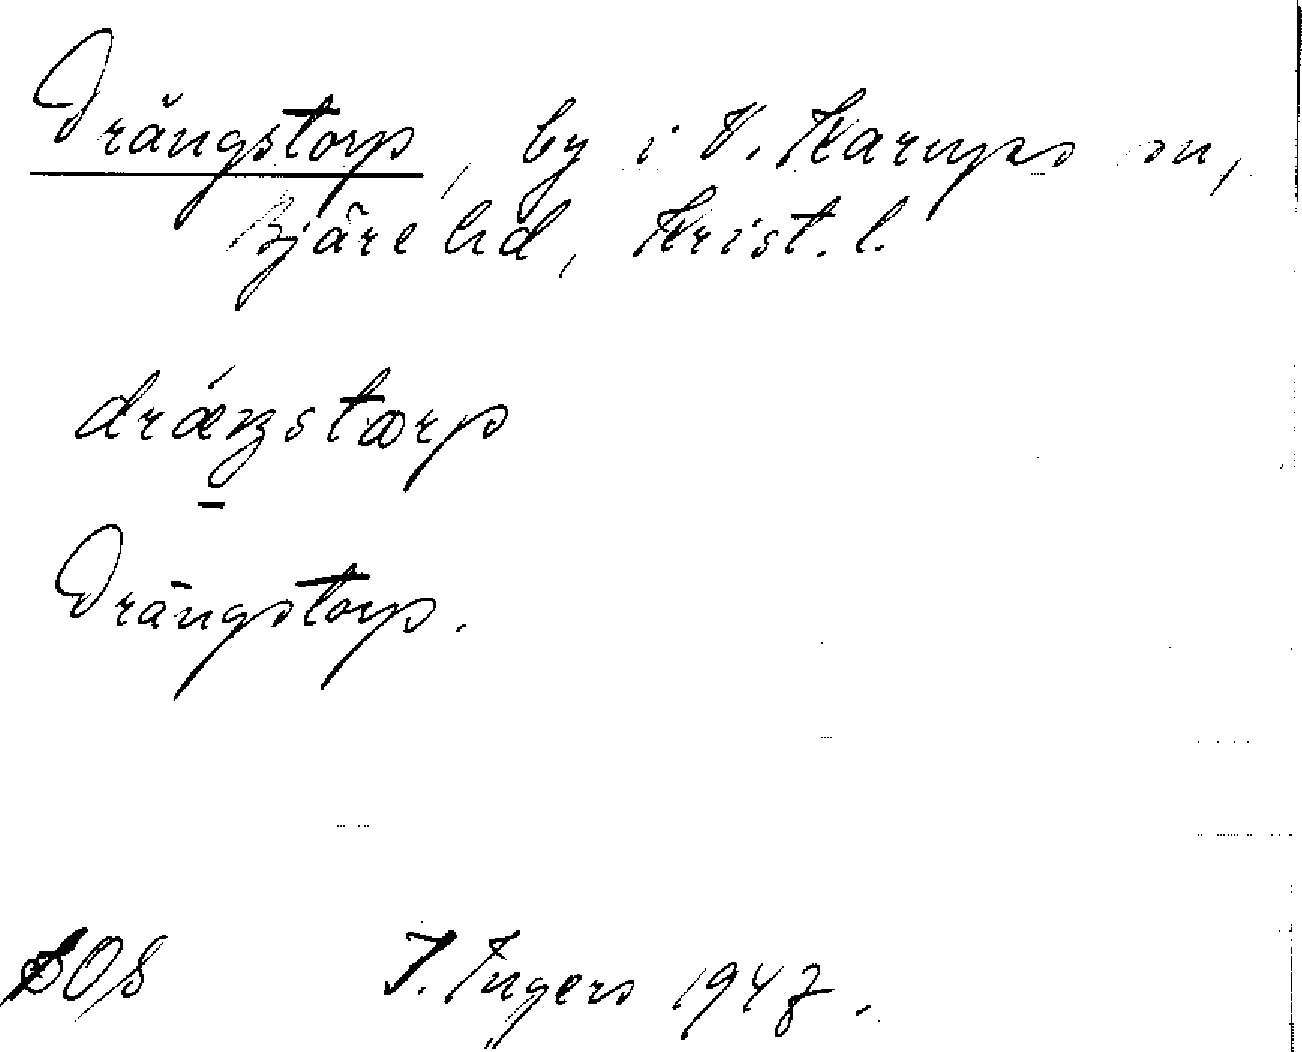 Drängstorp, by i V. Karups sn,
Bjäre hd, Krist. l.
drǽŋstorp
Drängstorp.
SOS I. Ingers 1947.